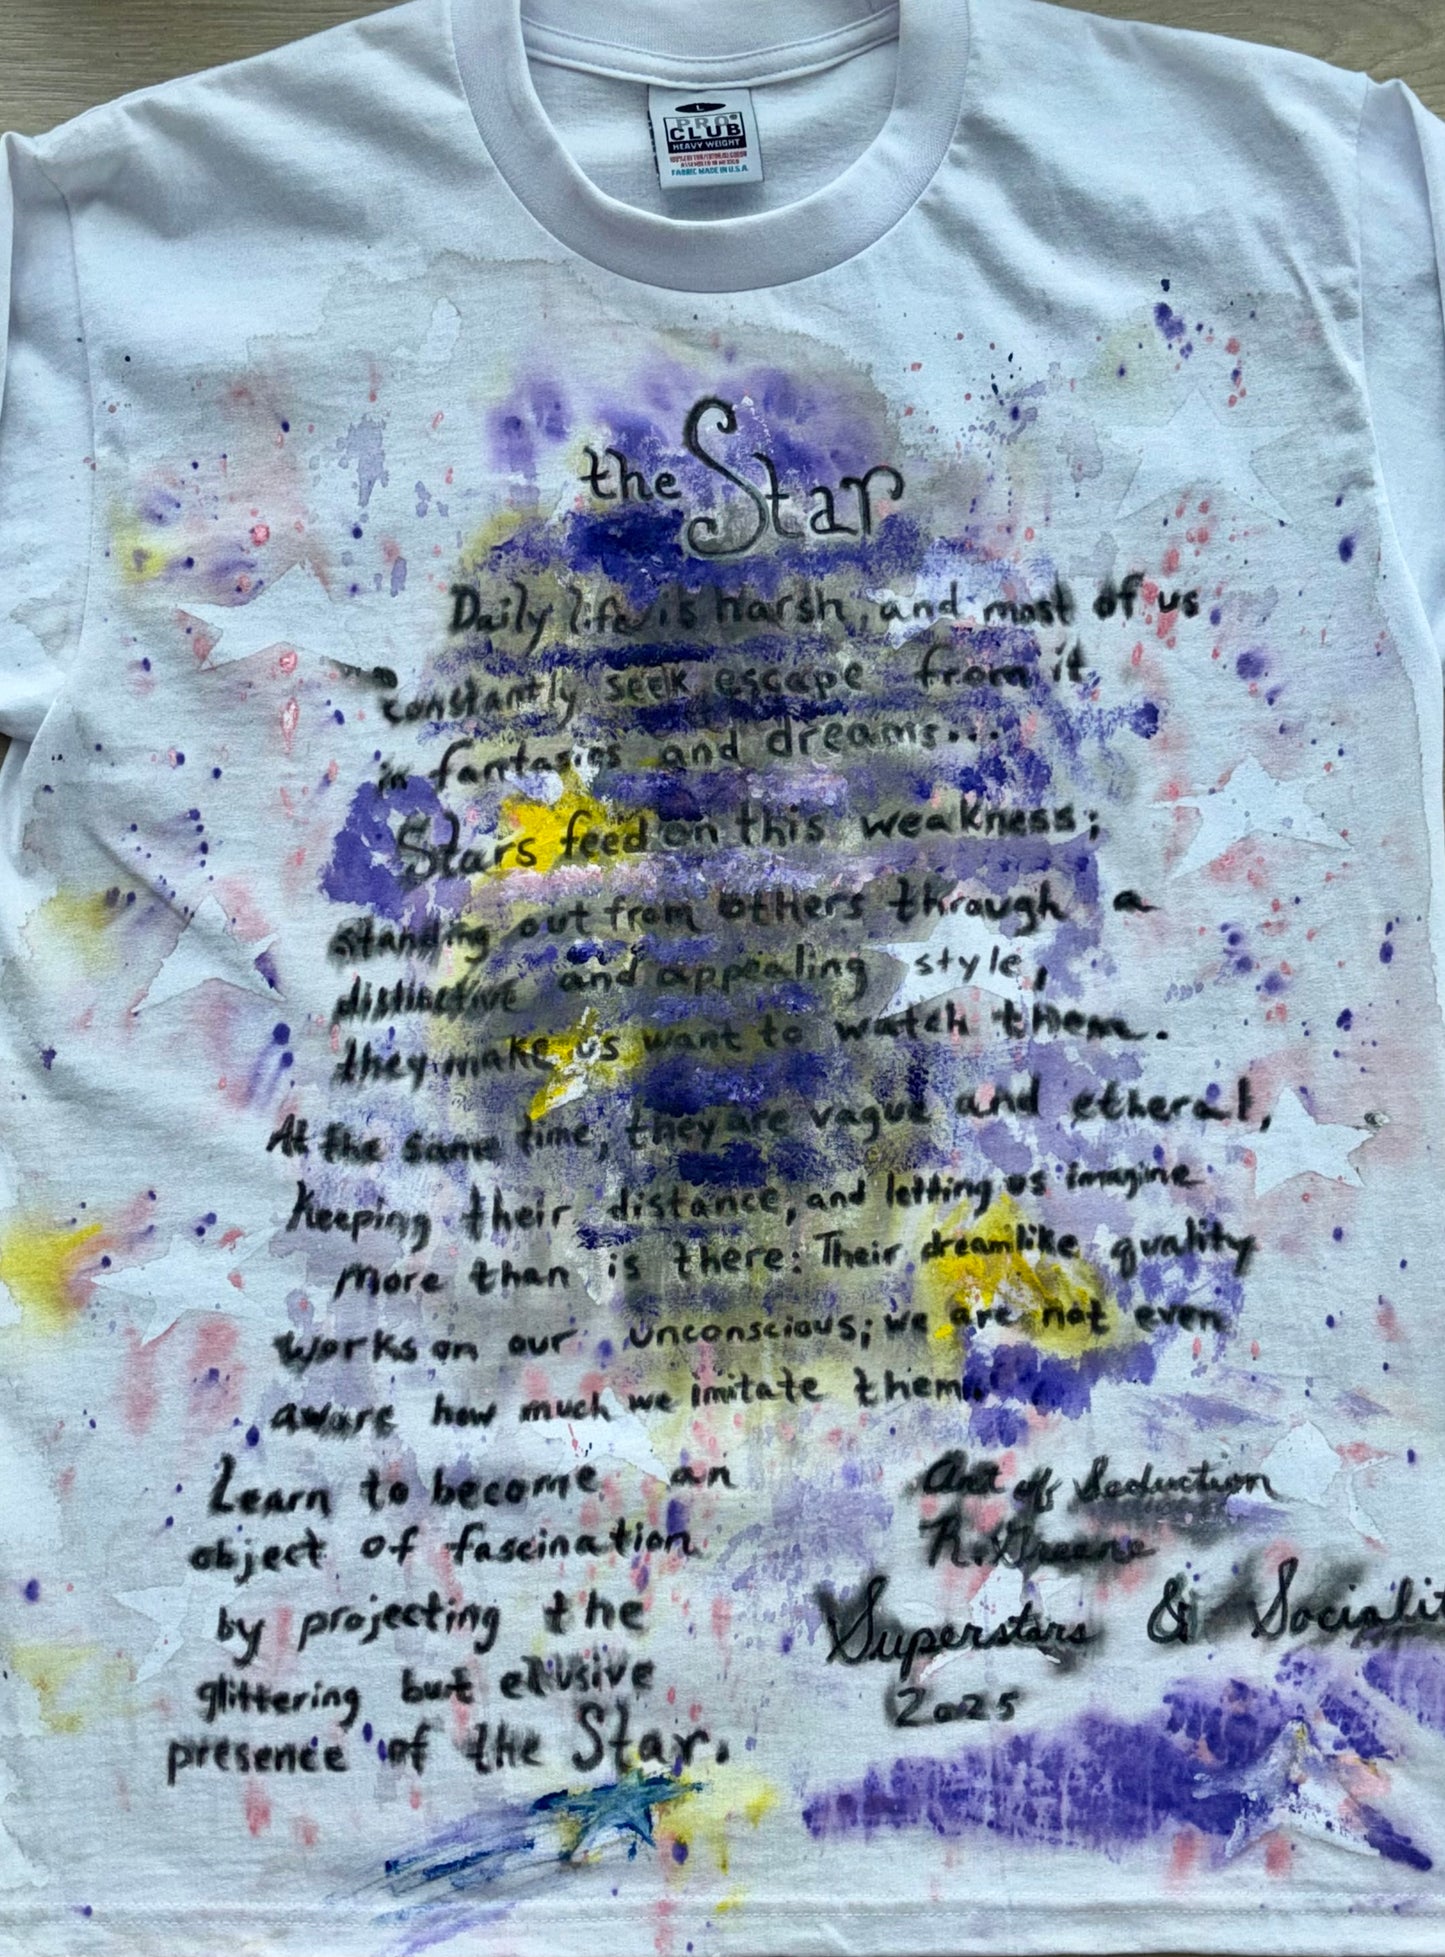 L
PRO
CLUB
HEAVY WEIGHT
ASSEMBLED IN MEXICO
FABRIC MADE IN U.S.A
the Star
Daily life is harsh, and most of us
constantly seek escape from it
in fantasies and dreams...
Stars feed on this weakness;
standing out from others through a
distinctive and appealing style,
they make us want to watch them.
At the same time, they are vague and etheral,
Keeping their distance, and letting us imagine
more than is there: Their dreamlike quality
works on our unconscious; we are not even
aware how much we imitate them.
Learn to become an
object of fascination
by projecting the
glittering but elusive
presence of the Star.
Art of Seduction
R. Greene
Superstars & Socialit
2025